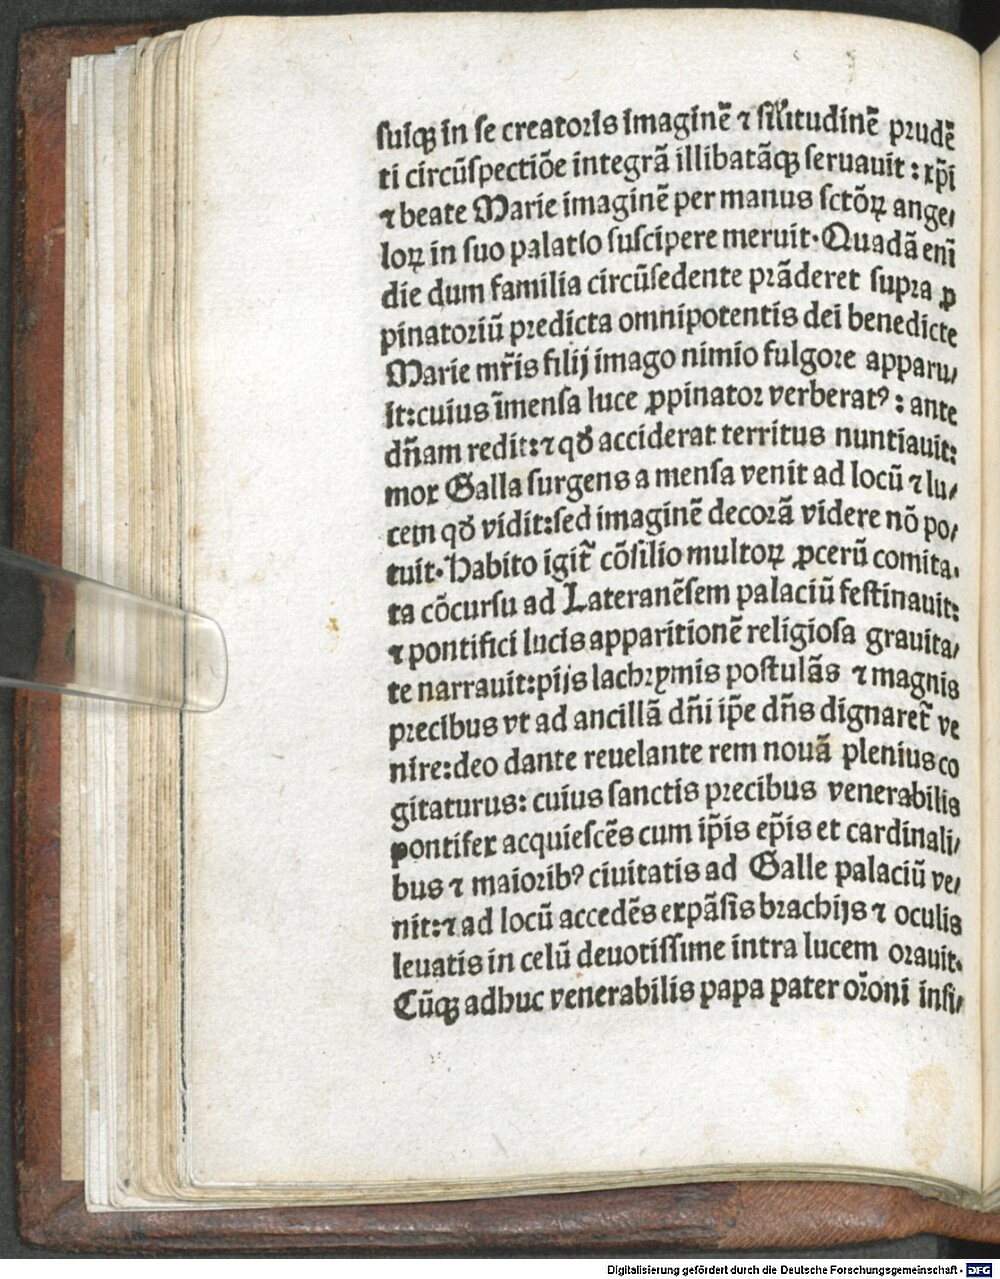 suiqꝫ in se creatoris imaginē ⁊ sil̄itudinē prudē
ti circūspectiōe integrā illibatāqꝫ seruauit : xp̄i
⁊ beate Marie imaginē per manus sctōꝝ ange/
loꝝ in suo palatio suscipere meruit. Quadā eni᷑
die dum familia circūsedente prāderet supra ꝓ
pinatoriū predicta omnipotentis dei benedicte
Marie mr̄is filij imago nimio fulgore apparu/
it: cuius īmensa luce ꝓpinator verberatꝰ : ante
dn̄am redit: ⁊ qđ acciderat territus nuntiauit:
mox Galla surgens a mensa venit ad locū ⁊ lu/
cem qđ vidit: sed imaginē decorā videre nō po/
tuit. Habito igit᷑ cōsilio multoꝝ ꝓcerū comita.
ta cōcursu ad Lateranēsem palaciū festinauit:
⁊ pontifici lucis apparitionē religiosa grauita/
te narrauit: pijs lachrymis postulās ⁊ magnis
precibus vt ad ancillā dn̄i ip̄e dn̄s dignaret᷑ ve
nire: deo dante reuelante rem nouā plenius co
gitaturus: cuius sanctis precibus venerabilis
pontifex acquiescēs cum ip̄is ep̄is et cardinali/
bus ⁊ maioribꝰ ciuitatis ad Galle palaciū ve/
nit: ⁊ ad locū accedēs expāsis brachijs ⁊ oculis
leuatis in celū deuotissime intra lucem orauit.
Cūqꝫ adhuc venerabilis papa pater or̄oni insi/
Digitalisierung gefördert durch die Deutsche Forschungsgemeinschaft - DFG